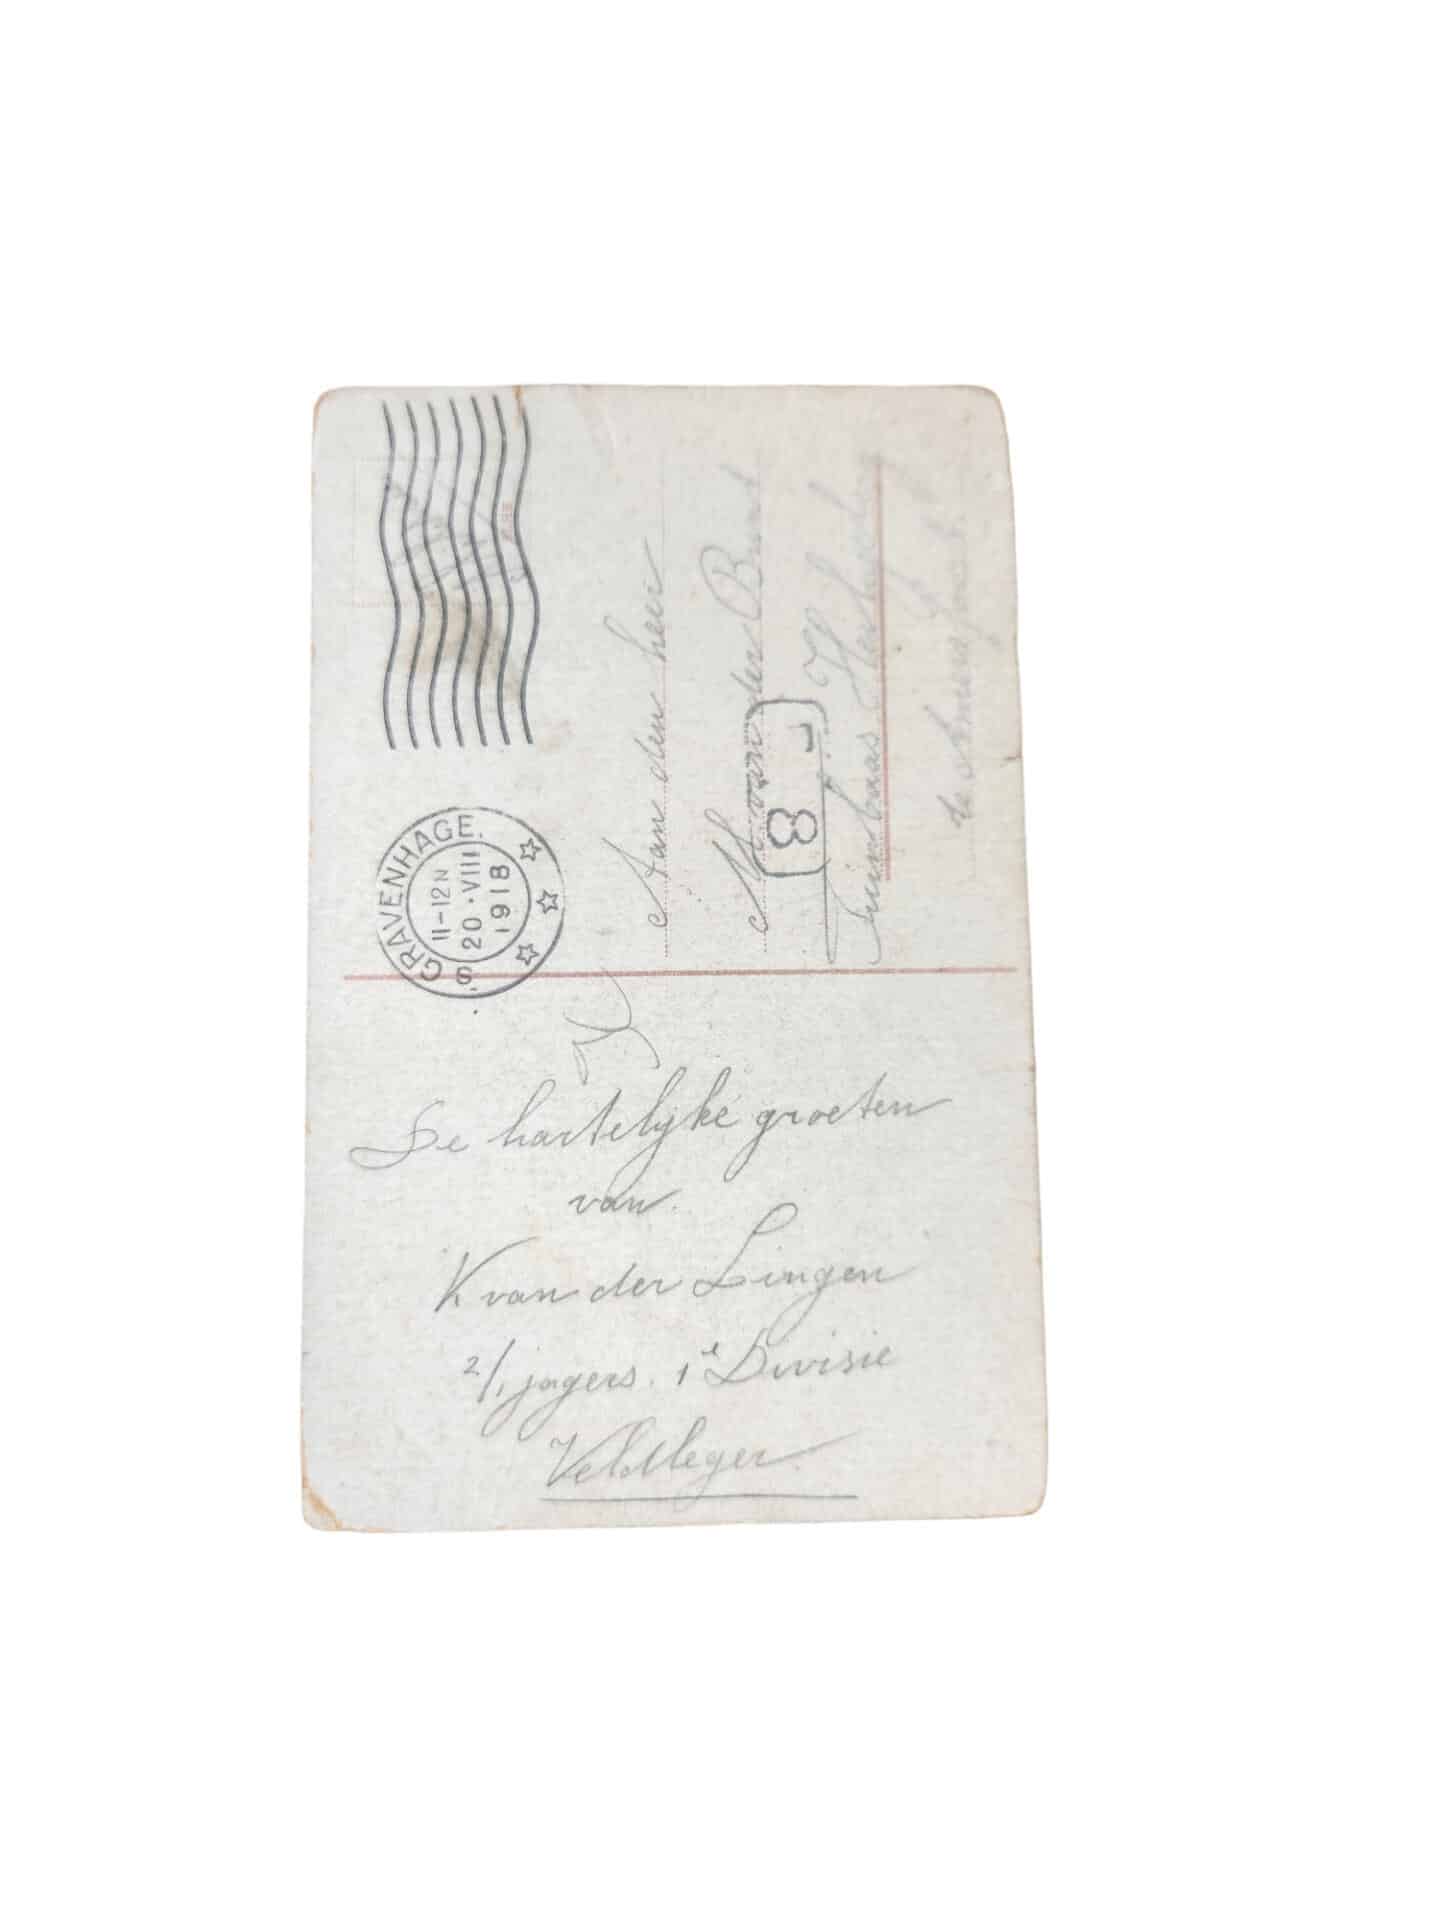 'S GRAVENHAGE.
11-12N
20.VIII
1918
Aan den heer
M. van der Bunt
8
Tuinbaas
te Amersfoort
De hartelyke groeten
van.
K van der Lingen
2/1 jagers. 1e Divisie
Veldleger.